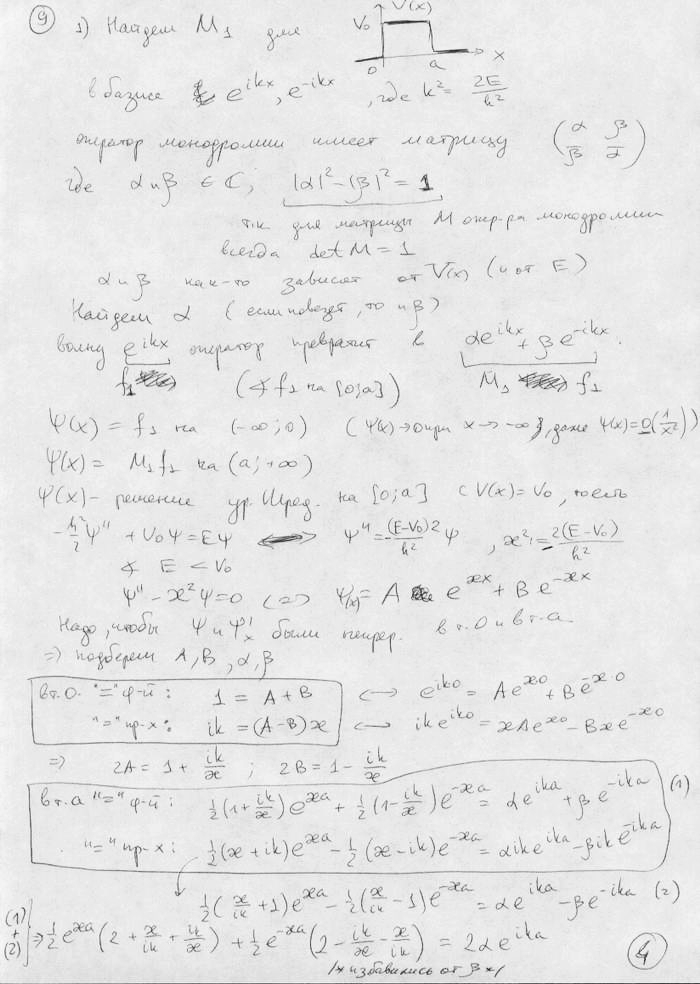 9
1) Найдем M₁ для
V(x)
V₀
0 a x
в базисе e^{ikx}, e^{-ikx}, где k² = 2E/ħ²
оператор монодромии имеет матрицу (α β; β̄ ᾱ)
где α и β ∈ ℂ; |α|² - |β|² = 1
т.к. для матрицы M опер-ра монодромии
всегда det M = 1
α и β как-то зависят от V(x) (и от E)
Найдем α (если повезет, то и β)
волну e^{ikx} оператор превратит в αe^{ikx} + βe^{-ikx}.
f₁ (∢ f₁ на [0;a]) M₁ f₁
Ψ(x) = f₁ на (-∞;0) (Ψ(x)→0 при x→-∞, даже Ψ(x)=o(1/x²))
Ψ(x) = M₁f₁ на (a;+∞)
Ψ(x) - решение ур. Шред. на [0;a] с V(x)=V₀, то есть
-ħ²/2 Ψ'' + V₀Ψ = EΨ ⟺ Ψ'' = -(E-V₀)2/ħ² Ψ, ϰ² = -2(E-V₀)/ħ²
∢ E < V₀
Ψ'' - ϰ²Ψ = 0 ⟺ Ψ(x) = A e^{ϰx} + B e^{-ϰx}
Надо, чтобы Ψ и Ψ'ₓ были непрер. в т. 0 и в т. a.
⇒ подберем A, B, α, β
в т. 0. "=" ф-й: 1 = A + B ⟷ e^{ik0} = Ae^{ϰ0} + Be^{-ϰ·0}
"=" пр-х: ik = (A-B)ϰ ⟷ ike^{ik0} = ϰAe^{ϰ0} - Bϰe^{-ϰ0}
⇒ 2A = 1 + ik/ϰ ; 2B = 1 - ik/ϰ
в т. a "=" ф-й: ½(1+ik/ϰ)e^{ϰa} + ½(1-ik/ϰ)e^{-ϰa} = αe^{ika} + βe^{-ika} (1)
"=" пр-х: ½(ϰ+ik)e^{ϰa} - ½(ϰ-ik)e^{-ϰa} = αike^{ika} - βike^{-ika}
½(ϰ/ik + 1)e^{ϰa} - ½(ϰ/ik - 1)e^{-ϰa} = αe^{ika} - βe^{-ika} (2)
(1)+(2)} ⇒ ½e^{ϰa}(2 + ϰ/ik + ik/ϰ) + ½e^{-ϰa}(2 - ik/ϰ - ϰ/ik) = 2αe^{ika}
/* избавились от β */
4